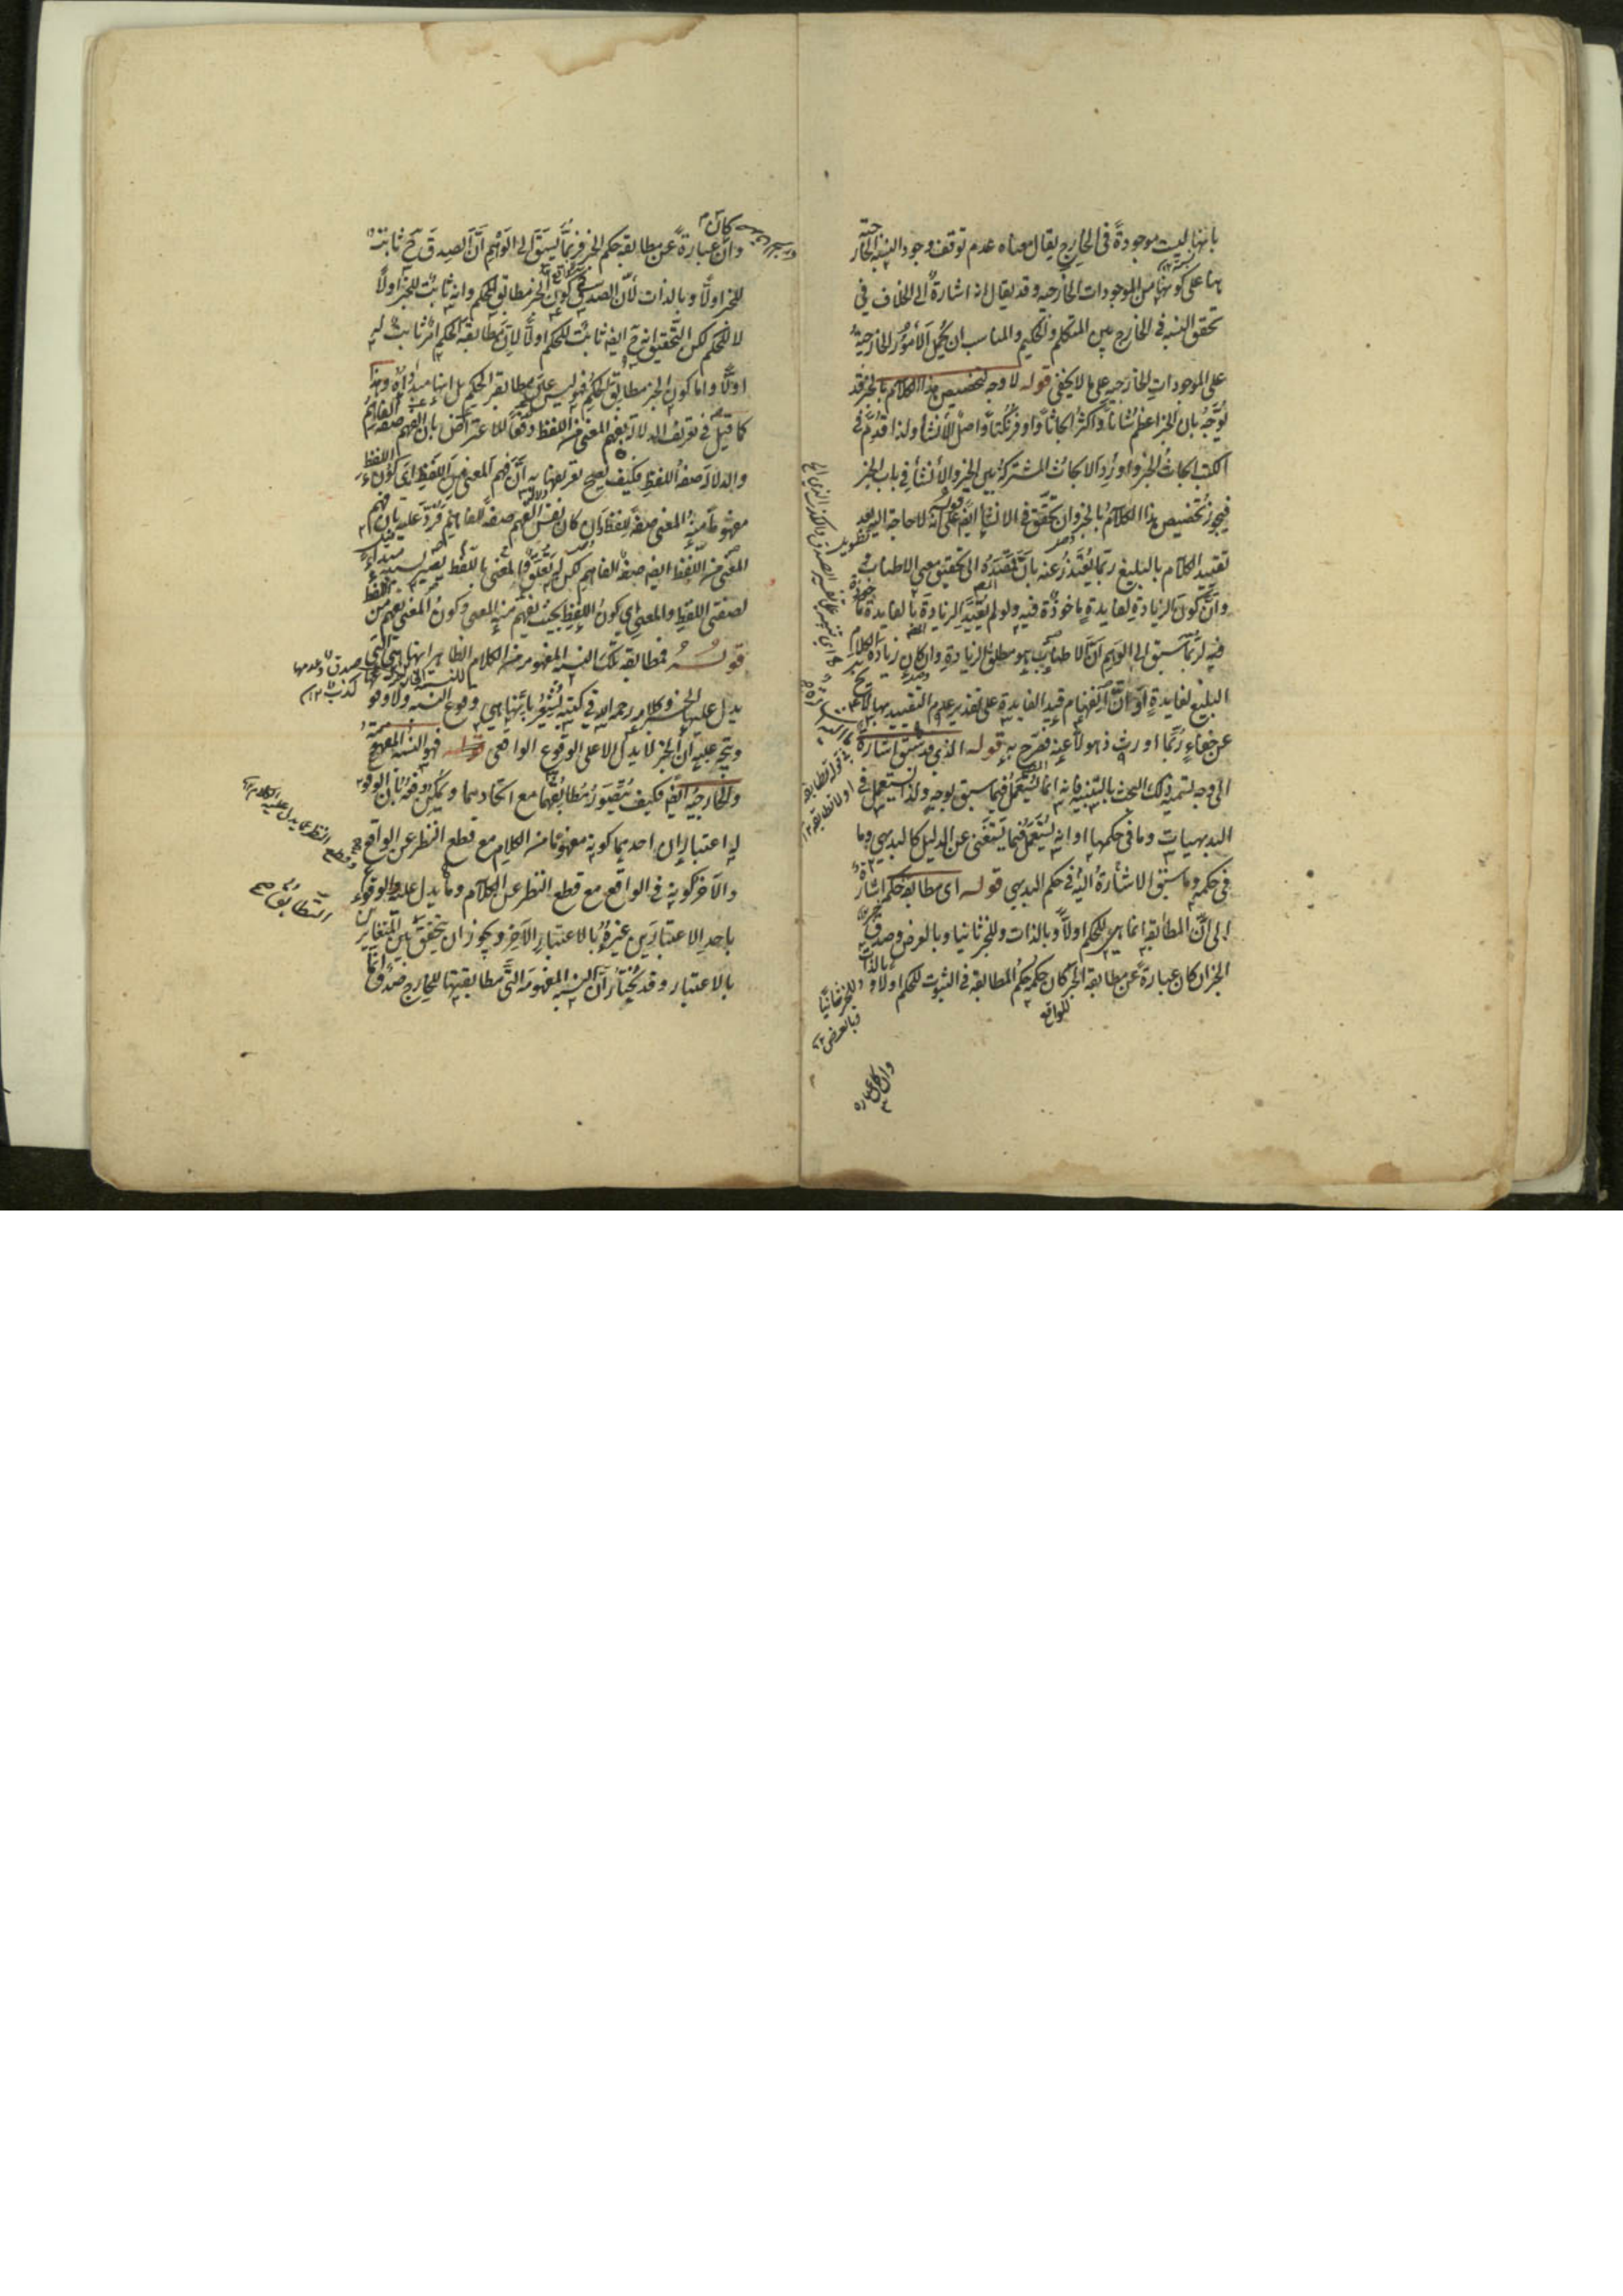 بانها ليست موجودة في الخارج يقال معناه عدم توقف وجود النسبة الخارجية
بها على كونها من الموجودات الخارجيه وقد يقال انه اشارة الى الخلاف في
تحقق النسبه في الخارج بين المتكلم والحكيم والمناسب ان يحمل الأمور الخارجية
على الموجودات الخارجيه على ما لا يخفى قوله لا وجه لتخصيص هذا الكلام بالخبر قد
يوجه بان الخبر اعظم شانا واكثر ابحاثا واوفر نكتا واصل للانشأ ولذا قدم في
الكتب ابحاث الخبر واورد الابحاث المشتركة بين الخبر والانشأ في باب الخبر
فيجوز تخصيص هذا الكلام بالخبر وان تحقق في الانشأ ايض قوله على انه لا حاجة اليه بعد
تقييد الكلام بالبليغ ربما يعتذر عنه بان قصده الى تحقيق معنى الاطناب
وان كون الزيادة لفايدة ماخوذة فيه ولو لم يقيد الزيادة بالفايدة
فيه لربما سبق الى الوهم ان الاطناب هو مطلق الزيادة وان كان زيادة الكلام
البليغ لفايدة او ان انفهام قيد الفايدة على تقدير عدم التقييد بها لا يخ
عن خفاء ربما اورث ذهولا عنه فصرح به قوله الذي قد سبق اشارة
الى وجه تسمية ذلك البحث بالتنبيه فانه انما يستعمل فيما سبق بوجه ولذا يستعمل في
البديهيات وما في حكمها او انه يستعمل فيما يستغنى عن الدليل كالبديهي وما
في حكمه وما سبق الاشارة اليه في حكم البديهي قوله اى مطابقة حكمه اشارة
الى ان المطابقه انما هي للحكم اولا وبالذات وللخبر ثانيا وبالعرض وصدق
الخبر ان كان عبارة عن مطابقة الخبر كان حكمه حكم المطابقه في الثبوت للحكم اولا و بالذات
وللخبر ثانيا
وبالعرض
للواقع
وان كان عبارة
كان
وان عبارة عن مطابقة حكم الخبر فربما يسبق الى الوهم ان الصدق ح ثابت
للخبر اولا وبالذات لان الصدق كون الخبر مطابق الحكم وانه ثابت للخبر اولا
لا للحكم لكن التحقيق انه ح ايضا ثابت للحكم اولا لان مطابقة الحكم امر ثابت له
اولا واما كون الخبر مطابق الحكم فهو ليس عين مطابقة الحكم بل انها مبدأه وهذا
كما قيل في تعريف الدلالة بفهم المعنى من اللفظ دفعا للاعتراض بان الفهم صفة الفاهم
والدلالة صفة اللفظ فكيف يصح تعريفها به ان فهم المعنى من اللفظ اى كون اللفظ
مفهوما منه المعنى صفة اللفظ وان كان نفس الفهم صفة للفاهم فرد عليه بان فهم
المعنى من اللفظ ايضا صفة الفاهم لكن له تعلق بالمعنى باللفظ يصير بسببه مبداء
لصفتى اللفظ والمعنى اى كون اللفظ بحيث يفهم منه المعنى وكون المعنى يفهم من اللفظ
قوله فمطابقة تلك النسبة المفهومة من الكلام الظاهر انها هي التي
يدل عليها الخبر وكلامه رحمه الله في كتبه يشعر بانها هي وقوع النسبه ولا وقوعها
ويتجه عليه ان الخبر لا يدل الا على الوقوع الواقعى فهو النسبة المفهومة
والخارجية ايضا فكيف يتصور مطابقتهما مع اتحادهما ويمكن دفعه بان الوقوع
له اعتباران احدهما كونه مفهوما من الكلام مع قطع النظر عن الواقع
والآخر كونه في الواقع مع قطع النظر عن الكلام وما يدل عليه والوقوع
باحد الاعتبارين غيره بالاعتبار الآخر ويجوز ان يتحقق التطابق بين المتغايرين
بالاعتبار وقد يختار ان النسبة المفهومة التى مطابقتها للخارج صدق انما